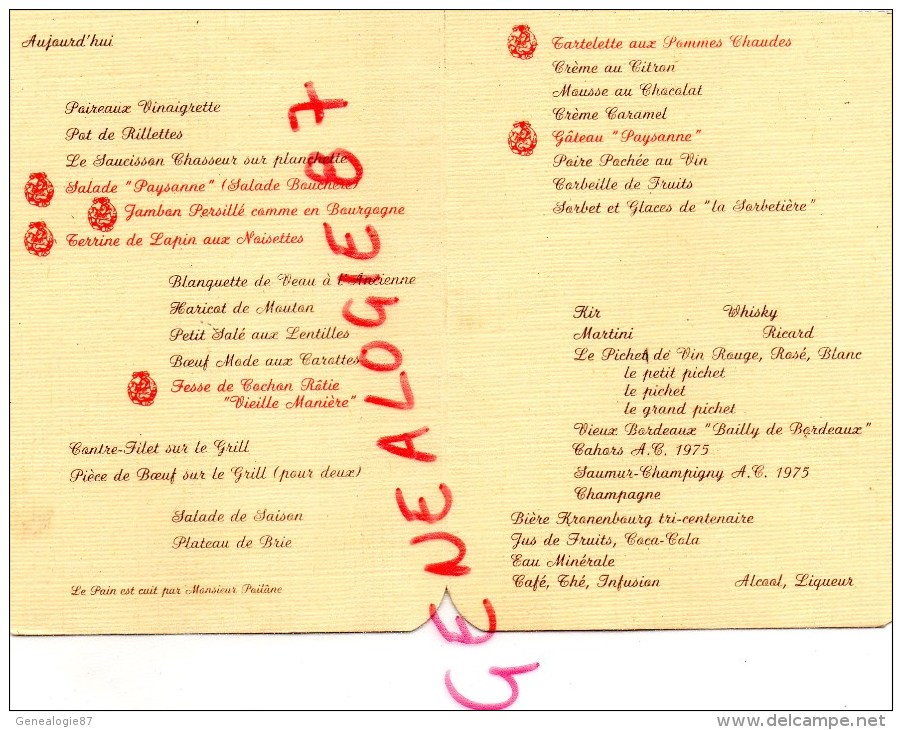 Aujourd'hui
Poireaux Vinaigrette
Pot de Rillettes
Le Saucisson Chasseur sur planchette
Salade "Paysanne" (Salade Bouchère)
Jambon Persillé comme en Bourgogne
Terrine de Lapin aux Noisettes
Blanquette de Veau à l'Ancienne
Haricot de Mouton
Petit Salé aux Lentilles
Bœuf Mode aux Carottes
Fesse de Cochon Rôtie
"Vieille Manière"
Contre-Filet sur le Grill
Pièce de Bœuf sur le Grill (pour deux)
Salade de Saison
Plateau de Brie
Le Pain est cuit par Monsieur Poilâne
Tartelette aux Pommes Chaudes
Crème au Citron
Mousse au Chocolat
Crème Caramel
Gâteau "Paysanne"
Poire Pochée au Vin
Corbeille de Fruits
Sorbet et Glaces de "la Sorbetière"
Kir Whisky
Martini Ricard
Le Pichet de Vin Rouge, Rosé, Blanc
le petit pichet
le pichet
le grand pichet
Vieux Bordeaux "Bailly de Bordeaux"
Cahors A.C. 1975
Saumur-Champigny A.C. 1975
Champagne
Bière Kronenbourg tri-centenaire
Jus de Fruits, Coca-Cola
Eau Minérale
Café, Thé, Infusion Alcool, Liqueur
GENEALOGIE 87
Genealogie87
www.delcampe.net